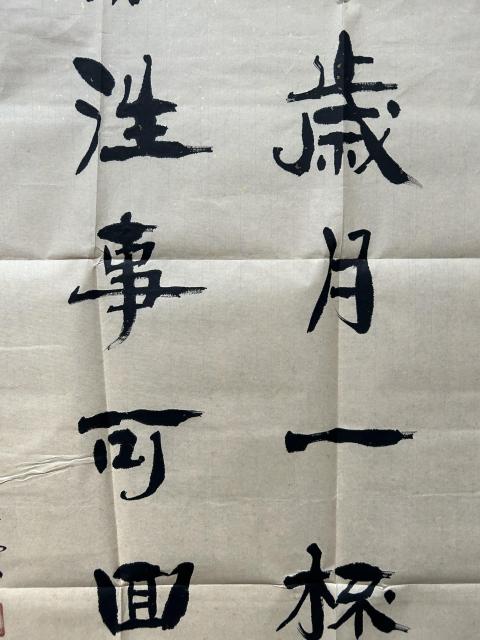 歲月一杯
往事可回